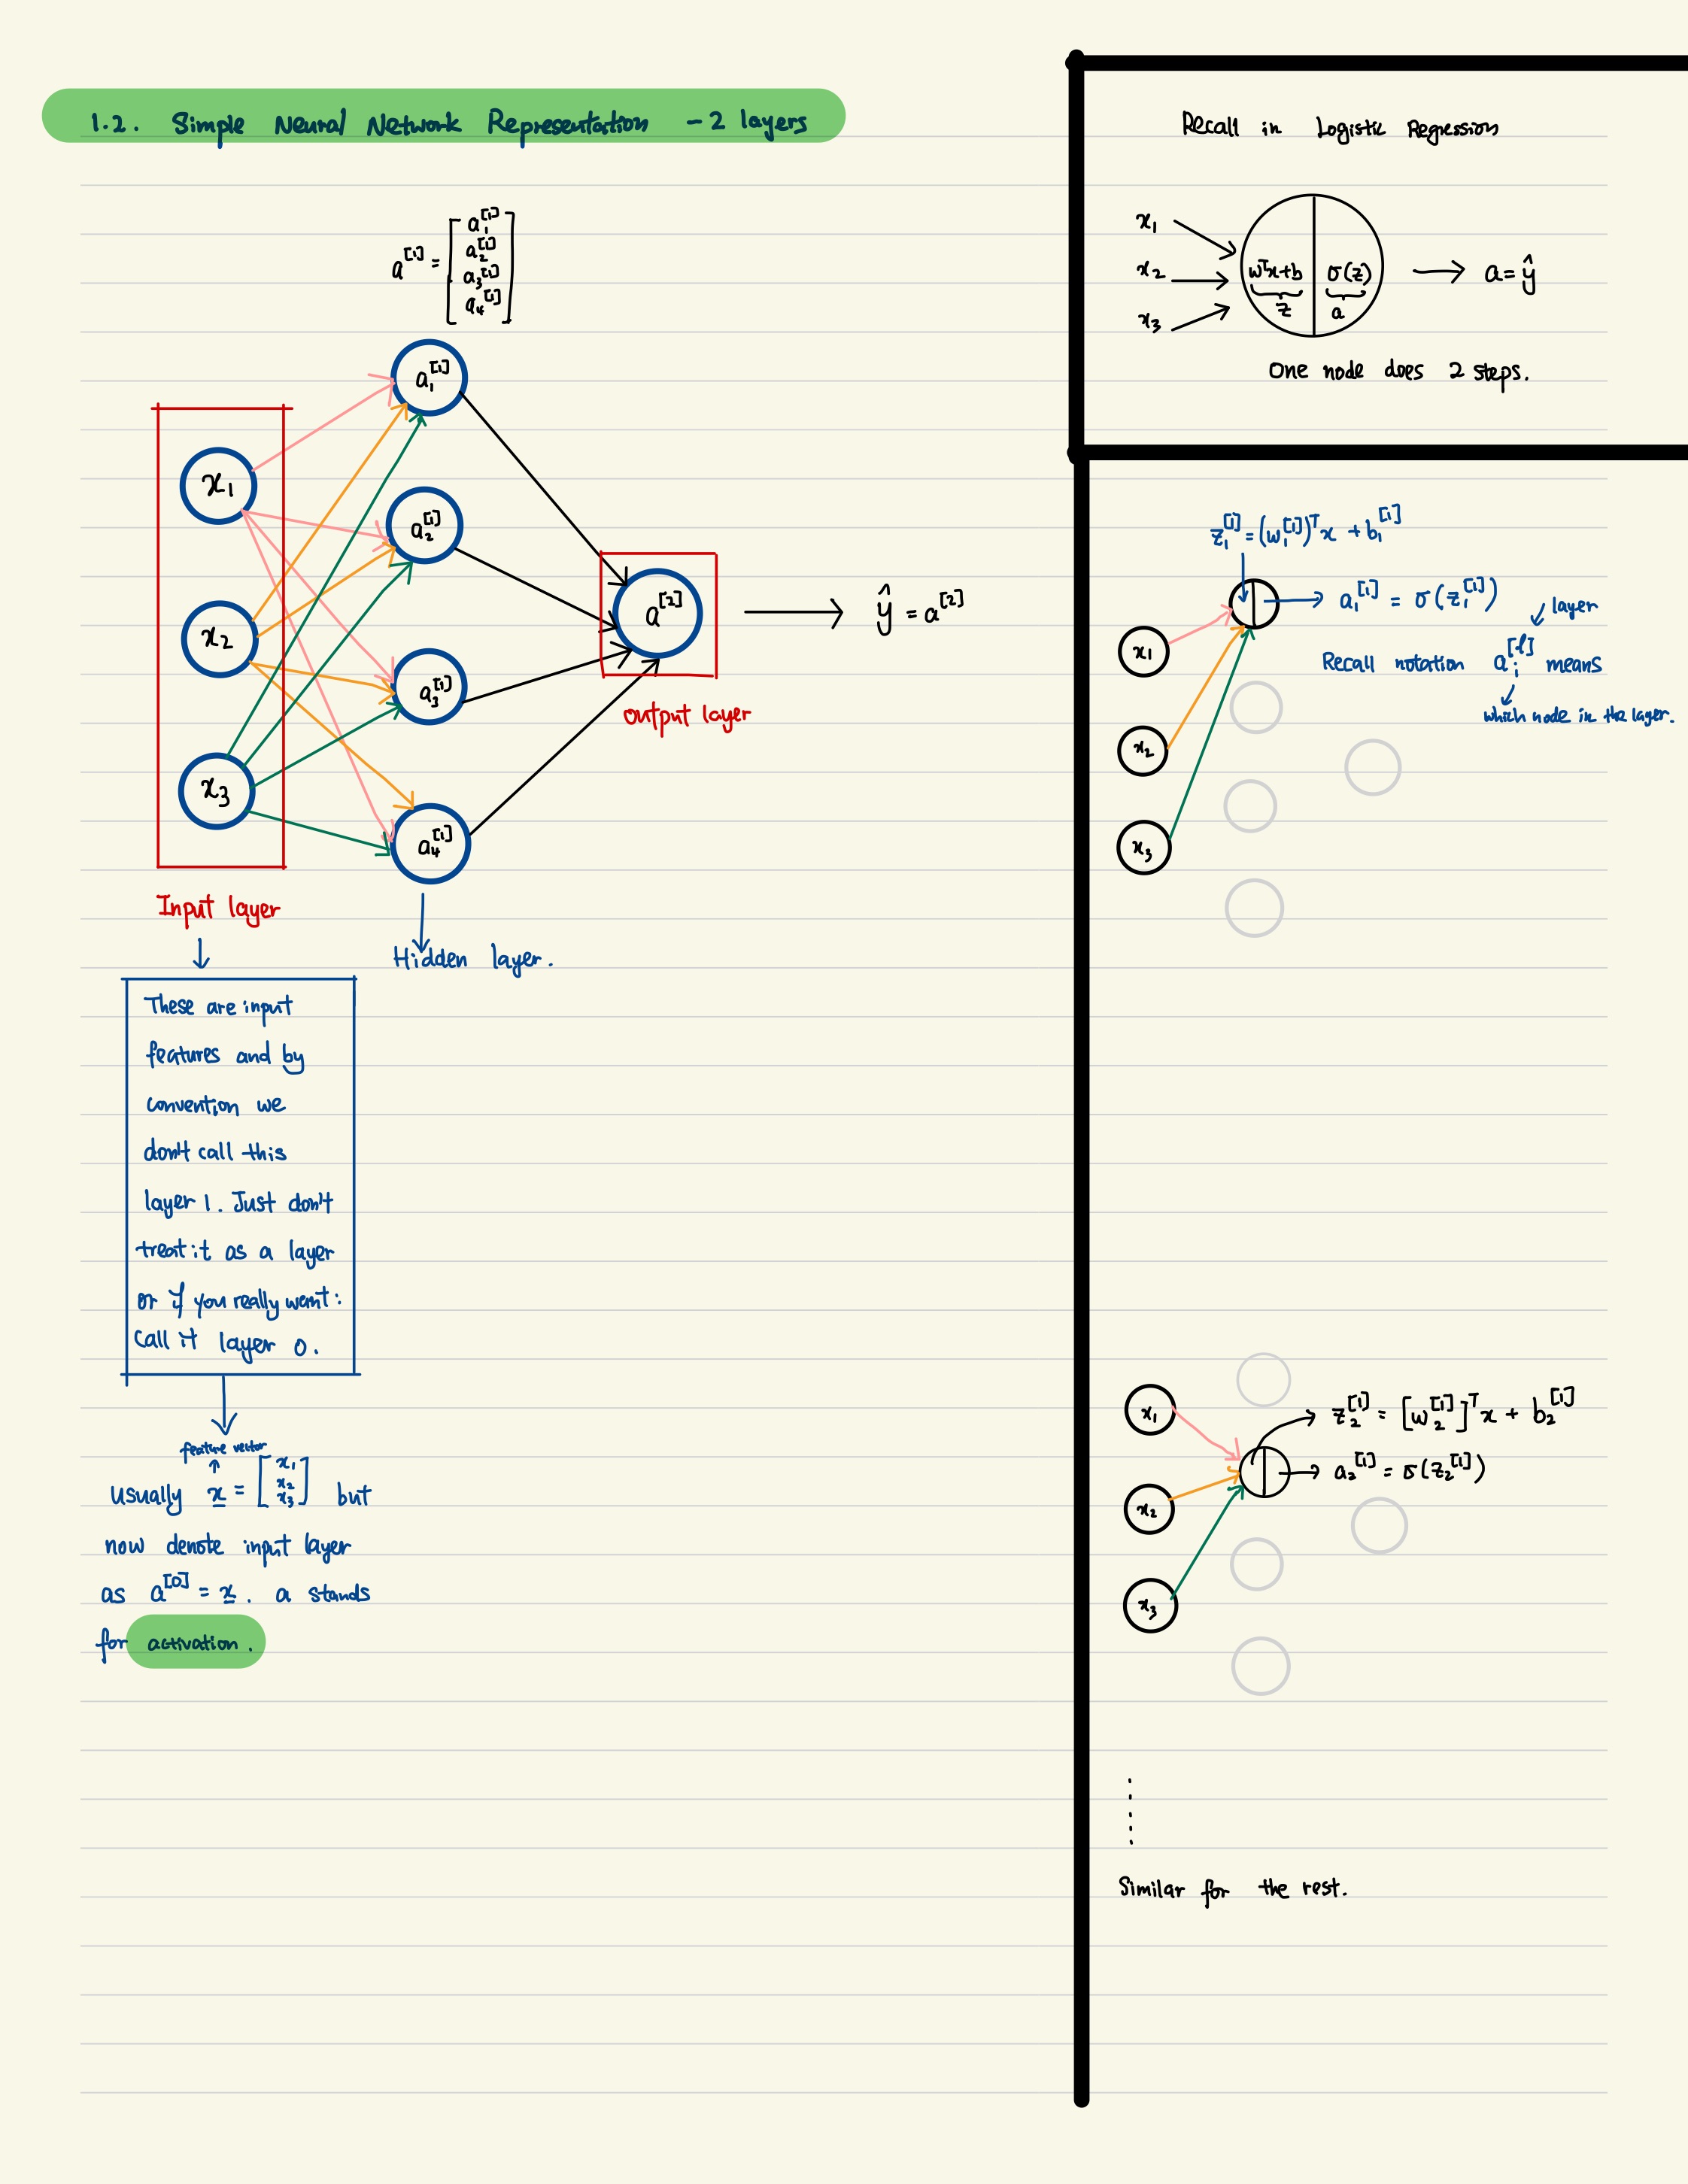 1.2. Simple Neural Network Representation - 2 layers
a^[1] = [a_1^[1]
a_2^[1]
a_3^[1]
a_4^[1]]
a_1^[1]
x_1
a_2^[1]
x_2
a^[2] → ŷ = a^[2]
a_3^[1]
output layer
x_3
a_4^[1]
Input layer
Hidden layer.
These are input
features and by
convention we
don't call this
layer 1. Just don't
treat it as a layer
or if you really want:
Call it layer 0.
feature vector
usually x = [x_1 x_2 x_3] but
now denote input layer
as a^[0] = x. a stands
for activation.
Recall in Logistic Regression
x_1
x_2
x_3
w^Tx+b
z
σ(z)
a
→ a = ŷ
One node does 2 steps.
z_1^[1] = (w_1^[1])^T x + b_1^[1]
→ a_1^[1] = σ(z_1^[1])
layer
Recall notation a_i^[l] means
which node in the layer.
x_1
x_2
x_3
x_1
z_2^[1] = [w_2^[1]]^T x + b_2^[1]
a_2^[1] = σ(z_2^[1])
x_2
x_3
Similar for the rest.